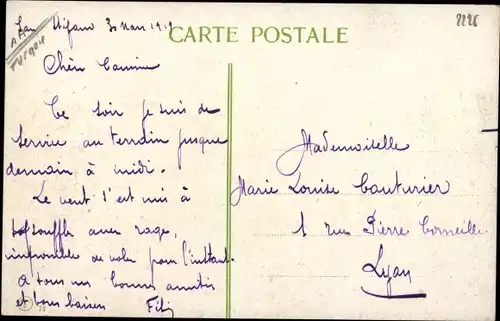 2226
San Stefano 30 Mars 1919
CARTE POSTALE
Turquie
Ce soir je suis de
service au terrain jusque
demain à midi.
Le vent s'est mis à
souffler avec rage,
impossible de voler pour l'instant.
A tous mes bonnes amitiés
et bons baisers
Mademoiselle
Marie Louise Couturier
1 rue Pierre Corneille
Lyon